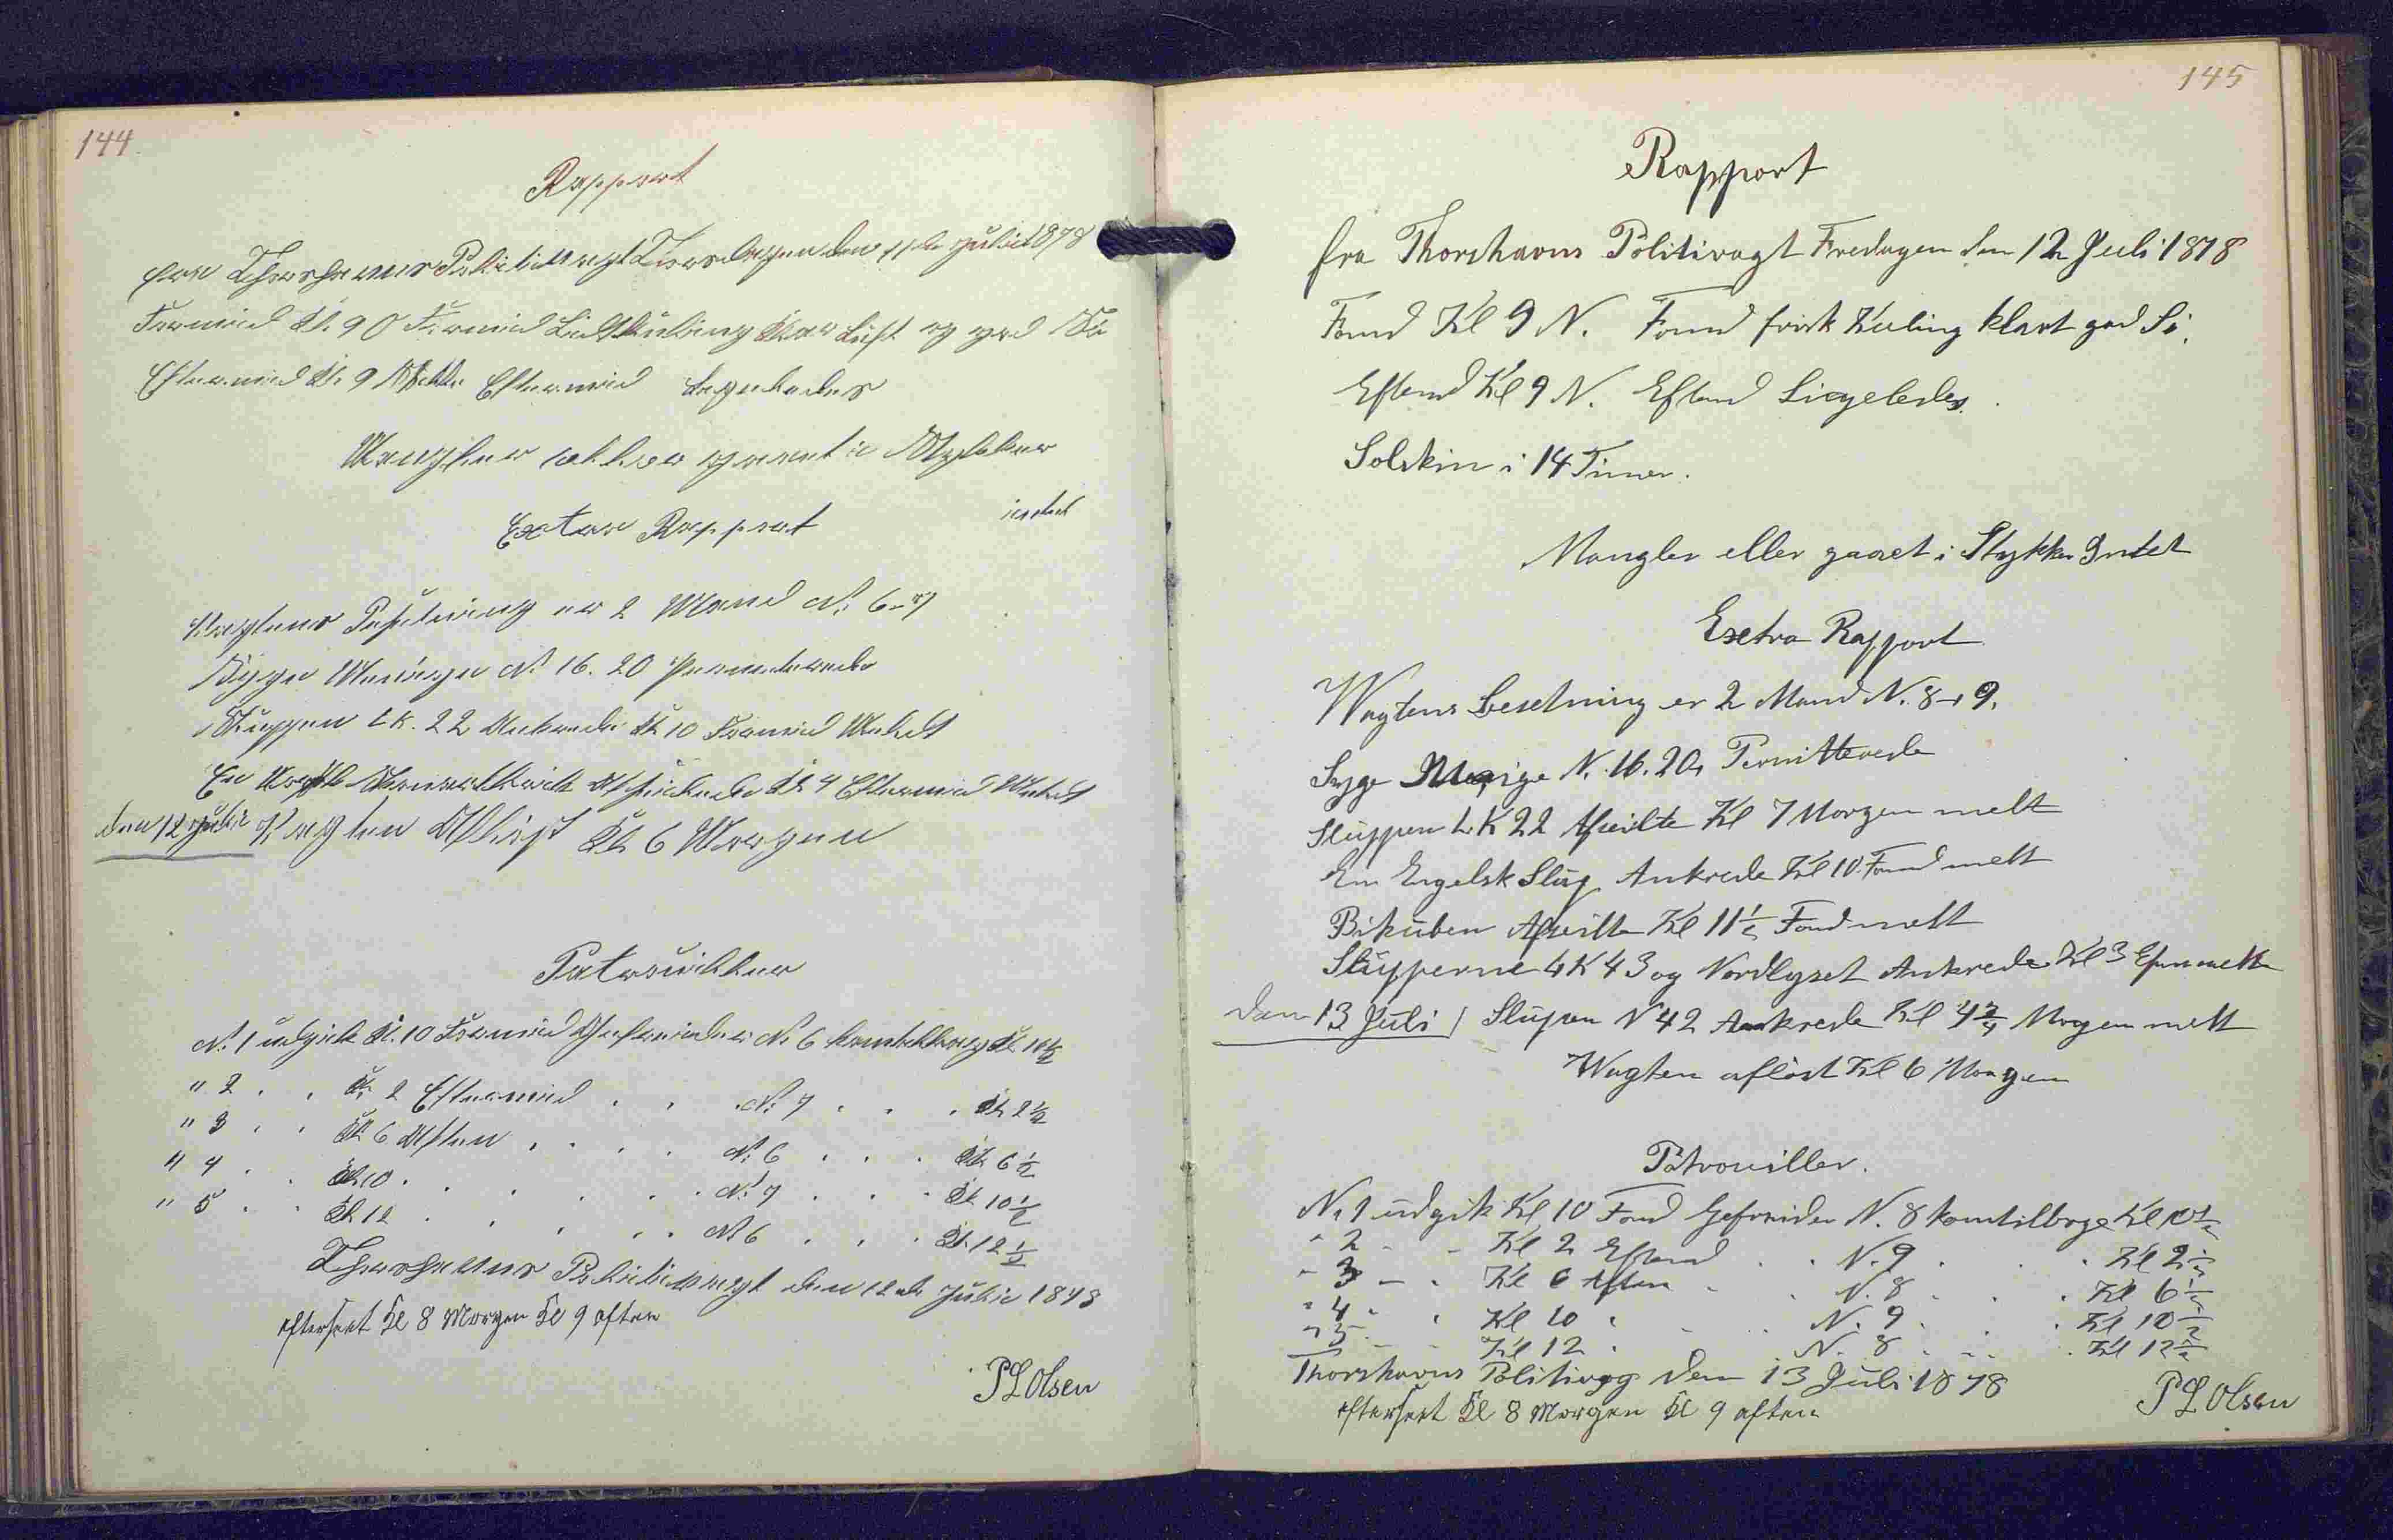 144
Rapport
fra Thorshavns Politivagt Torsdagen den 11te Juli 1878
Formid Kl. 9 O Formid Lidt Kuling Klar Luft og god Sø
Eftermid Kl. 9 Eftermid Ligeledes
Mangler eller gaaet i Stykker
intet
Extra Rapport
Vagtens Besetning er 2 Mand N. 6-7
Syge Menige N. 16. 20 Permiterede
Sluppen LK. 22 Ankrede Kl 10 Formid Meldt
En Afseilede Kl 4 Eftermid Meldt
den 12 Juli Vagten Afløst Kl 6 Morgen
Patrouiller
N. 1 udgik Kl. 10 Formid Gefreider N. 6 komtilbage Kl 10½
" 2 . . Kl. 2 Eftermid . . N. 7 . . . Kl 2½
" 3 . . Kl 6 Aften . . . . N. 6 . . . Kl 6½
" 4 . . Kl 10 . . . . . . N. 7 . . . Kl 10½
" 5 . . Kl 12 . . . . . . N 6 . . . Kl. 12½
Thorshavns Politivagt den 12te Juli 1878
efterseet Kl 8 Morgen Kl 9 aften
P L Olsen
145
Rapport
fra Thorshavns Politivagt Fredagen den 12 Juli 1878
Fomd Kl 9 N. Fomd frisk Kuling klart god Sö.
Eftemd Kl 9 N. Eftemd Liegeledes.
Solskin i 14 Timer.
Mangler eller gaaet i Stykker Intet
Exetra Rapport
Wagtens Besetning er 2 Mand N. 8-9.
Syge Menige N. 16. 20, Permitterede
Sluppen L K 22 Afseilte Kl 7 Morgen melt
En Engelsk Slup Ankrede Kl 10 Fomd melt
Bikuben Afseilte Kl 11½ Fomd melt
Slupperne LK 43 og Nordlyset Ankrede Kl 3 Efm melte
Den 13 Juli / Slupen N 42 Ankrede Kl 4¾ Morgen melt
Wagten aflöst Kl 6 Morgen
Patrouiller.
N. 1 udgik Kl 10 Fomd Gefreider N. 8 komtilbage Kl 10½
" 2 - - Kl 2 Eftemd . . N. 9 . . Kl 2½
" 3 - . Kl 6 Aften . . N. 8 . . . Kl 6½
" 4 . . Kl 10 . . . N. 9 . . . Kl 10½
" 5 - - Kl 12 . . N. 8 . . . Kl 12½
Thorshavns Politivagt Den 13 Juli 1878
efterseet Kl 8 Morgen Kl 9 aften
P L Olsen